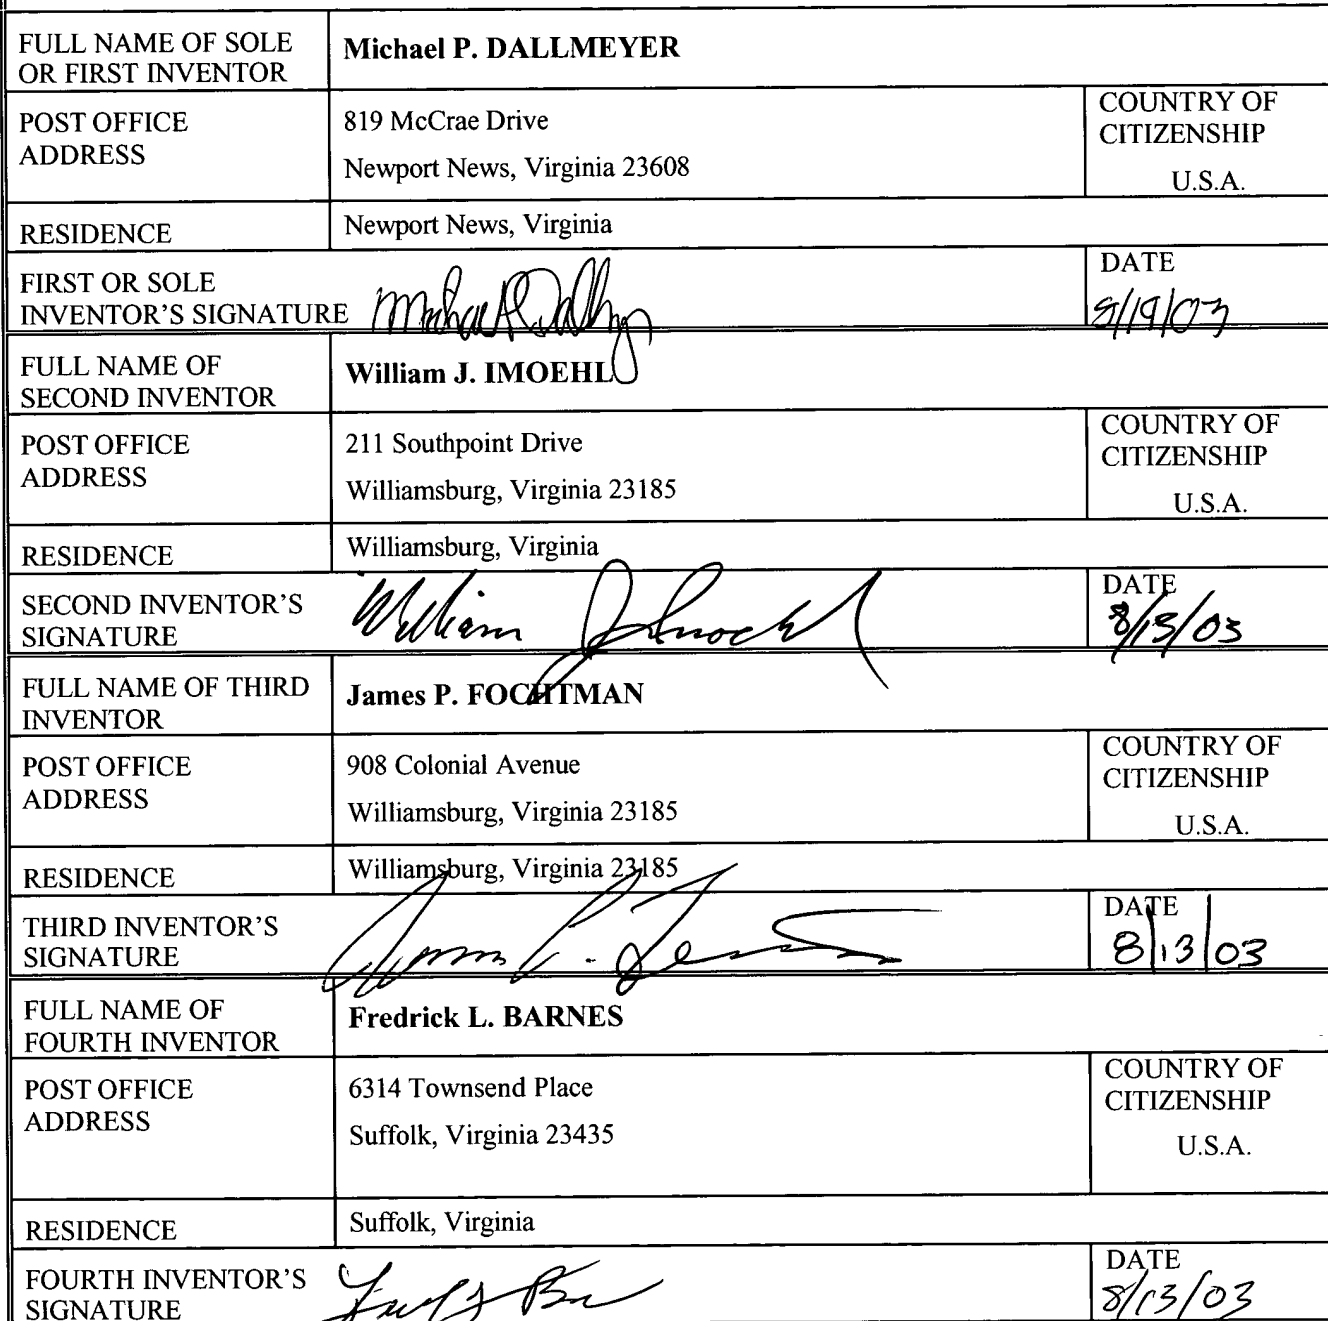 FULL NAME OF SOLE
OR FIRST INVENTOR
Michael P. DALLMEYER
POST OFFICE
ADDRESS
819 McCrae Drive
Newport News, Virginia 23608
COUNTRY OF
CITIZENSHIP
U.S.A.
RESIDENCE
Newport News, Virginia
FIRST OR SOLE
INVENTOR'S SIGNATURE
DATE
8/19/03
FULL NAME OF
SECOND INVENTOR
William J. IMOEHL
POST OFFICE
ADDRESS
211 Southpoint Drive
Williamsburg, Virginia 23185
COUNTRY OF
CITIZENSHIP
U.S.A.
RESIDENCE
Williamsburg, Virginia
SECOND INVENTOR'S
SIGNATURE
William
DATE
8/13/03
FULL NAME OF THIRD
INVENTOR
James P. FOCHTMAN
POST OFFICE
ADDRESS
908 Colonial Avenue
Williamsburg, Virginia 23185
COUNTRY OF
CITIZENSHIP
U.S.A.
RESIDENCE
Williamsburg, Virginia 23185
THIRD INVENTOR'S
SIGNATURE
DATE
8/13/03
FULL NAME OF
FOURTH INVENTOR
Fredrick L. BARNES
POST OFFICE
ADDRESS
6314 Townsend Place
Suffolk, Virginia 23435
COUNTRY OF
CITIZENSHIP
U.S.A.
RESIDENCE
Suffolk, Virginia
FOURTH INVENTOR'S
SIGNATURE
DATE
8/13/03